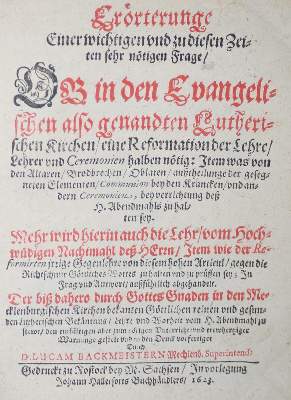 Erörterunge
Einer wichtigen vnd zu diesen Zei-
ten sehr nötigen Frage/
OB in den Evangeli-
schen also genandten Lutheri-
schen Kirchen/ eine Reformation der Lehre/
Lehrer vnd Ceremonien halben nötig: Item was von
den Altaren/ Brodbrechen/ Oblaten/ außtheilunge der geseg-
neten Elementen/ Communion bey den Krancken/ vnd an-
dern Ceremonien, bey verrichtung deß
H. Abendmahls zu hal-
ten sey.
Mehr wird hierin auch die Lehr/ vom Hoch-
würdigen Nachtmahl deß HErrn/ Item wie der Re-
formirten jrrige Gegenlehre von diesem hohen Articul/ gegen die
Richtschnur Göttliches Wortes zu halten vnd zu prüfen sey: In
Frag vnd Antwort/ außführlich abgehandelt.
Der biß dahero durch Gottes Gnaden in den Me-
cklenburgischen Kirchen bekanten Göttlichen reinen vnd gesun-
den Lutherischen Bekäntnus/ Lehre vnd Warheit vom H. Abendmahl zu
stewr/ den einfältigen aber zum nötigen Unterricht/ vnd trewhertziger
Warnunge gestelt vnd in den Druck verfertiget
Durch
D. LUCAM BACKMEISTERN Mechlenb. Superintend:
Gedruckt zu Rostock bey M. Sachsen/ In vorlegung
Johann Hallerforts Buchhändlers/ 1623.